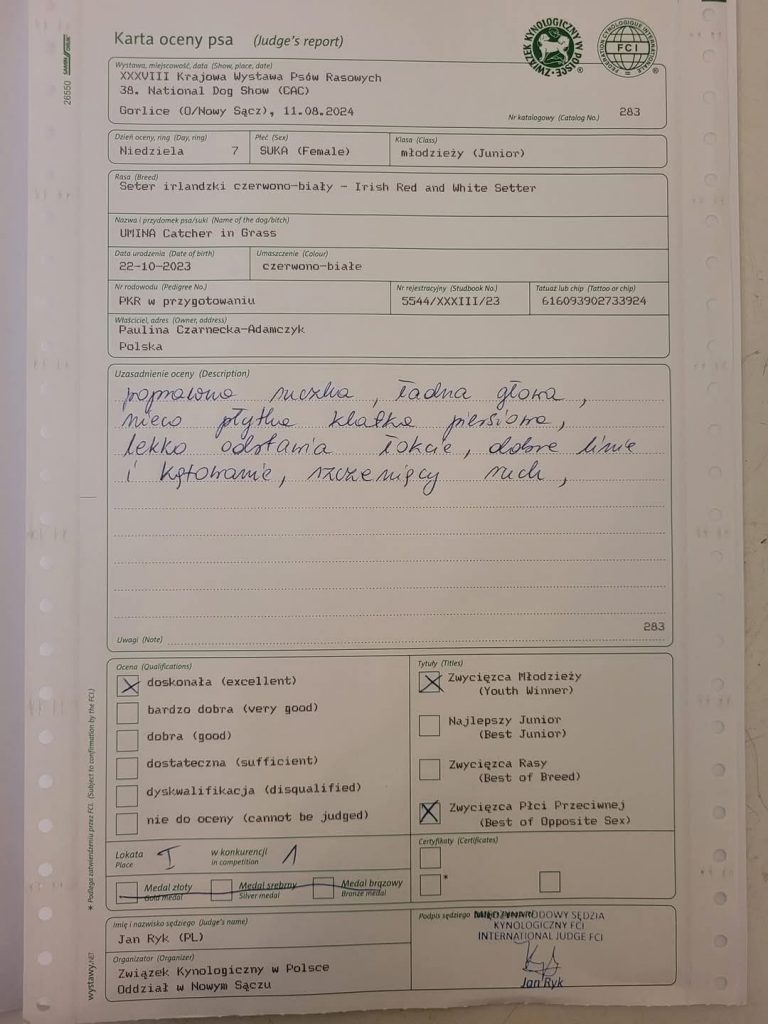 Karta oceny psa (Judge's report)
ZWIĄZEK KYNOLOGICZNY W POLSCE
FEDERATION CYNOLOGIQUE INTERNATIONALE
FCI
26550
Wystawa, miejscowość, data (Show, place, date)
XXXVIII Krajowa Wystawa Psów Rasowych
38. National Dog Show (CAC)
Gorlice (O/Nowy Sącz), 11.08.2024
Nr katalogowy (Catalog No.) 283
Dzień oceny, ring (Day, ring) Płeć (Sex) Klasa (Class)
Niedziela 7 SUKA (Female) młodzieży (Junior)
Rasa (Breed)
Seter irlandzki czerwono-biały - Irish Red and White Setter
Nazwa i przydomek psa/suki (Name of the dog/bitch)
UMINA Catcher in Grass
Data urodzenia (Date of birth) Umaszczenie (Colour)
22-10-2023 czerwono-białe
Nr rodowodu (Pedigree No.) Nr rejestracyjny (Studbook No.) Tatuaż lub chip (Tattoo or chip)
PKR w przygotowaniu 5544/XXXIII/23 616093902733924
Właściciel, adres (Owner, address)
Paulina Czarnecka-Adamczyk
Polska
Uzasadnienie oceny (Description)
poprawna suczka, ładna głowa,
nieco płytka klatka piersiowa,
lekko odstawia łokcie, dobre linie
i kątowanie, szczenięcy ruch,
283
Uwagi (Note)
Ocena (Qualifications)
doskonała (excellent)
bardzo dobra (very good)
dobra (good)
dostateczna (sufficient)
dyskwalifikacja (disqualified)
nie do oceny (cannot be judged)
Tytuły (Titles)
Zwycięzca Młodzieży
(Youth Winner)
Najlepszy Junior
(Best Junior)
Zwycięzca Rasy
(Best of Breed)
Zwycięzca Płci Przeciwnej
(Best of Opposite Sex)
Lokata I w konkurencji 1
Place in competition
Medal złoty Medal srebrny Medal brązowy
Gold medal Silver medal Bronze medal
Certyfikaty (Certificates)
*
Imię i nazwisko sędziego (Judge's name)
Jan Ryk (PL)
Organizator (Organizer)
Związek Kynologiczny w Polsce
Oddział w Nowym Sączu
Podpis sędziego
MIĘDZYNARODOWY SĘDZIA
KYNOLOGICZNY FCI
INTERNATIONAL JUDGE FCI
Jan Ryk
* Podlega zatwierdzeniu przez FCI. (Subject to confirmation by the FCI.)
wystawy.NET